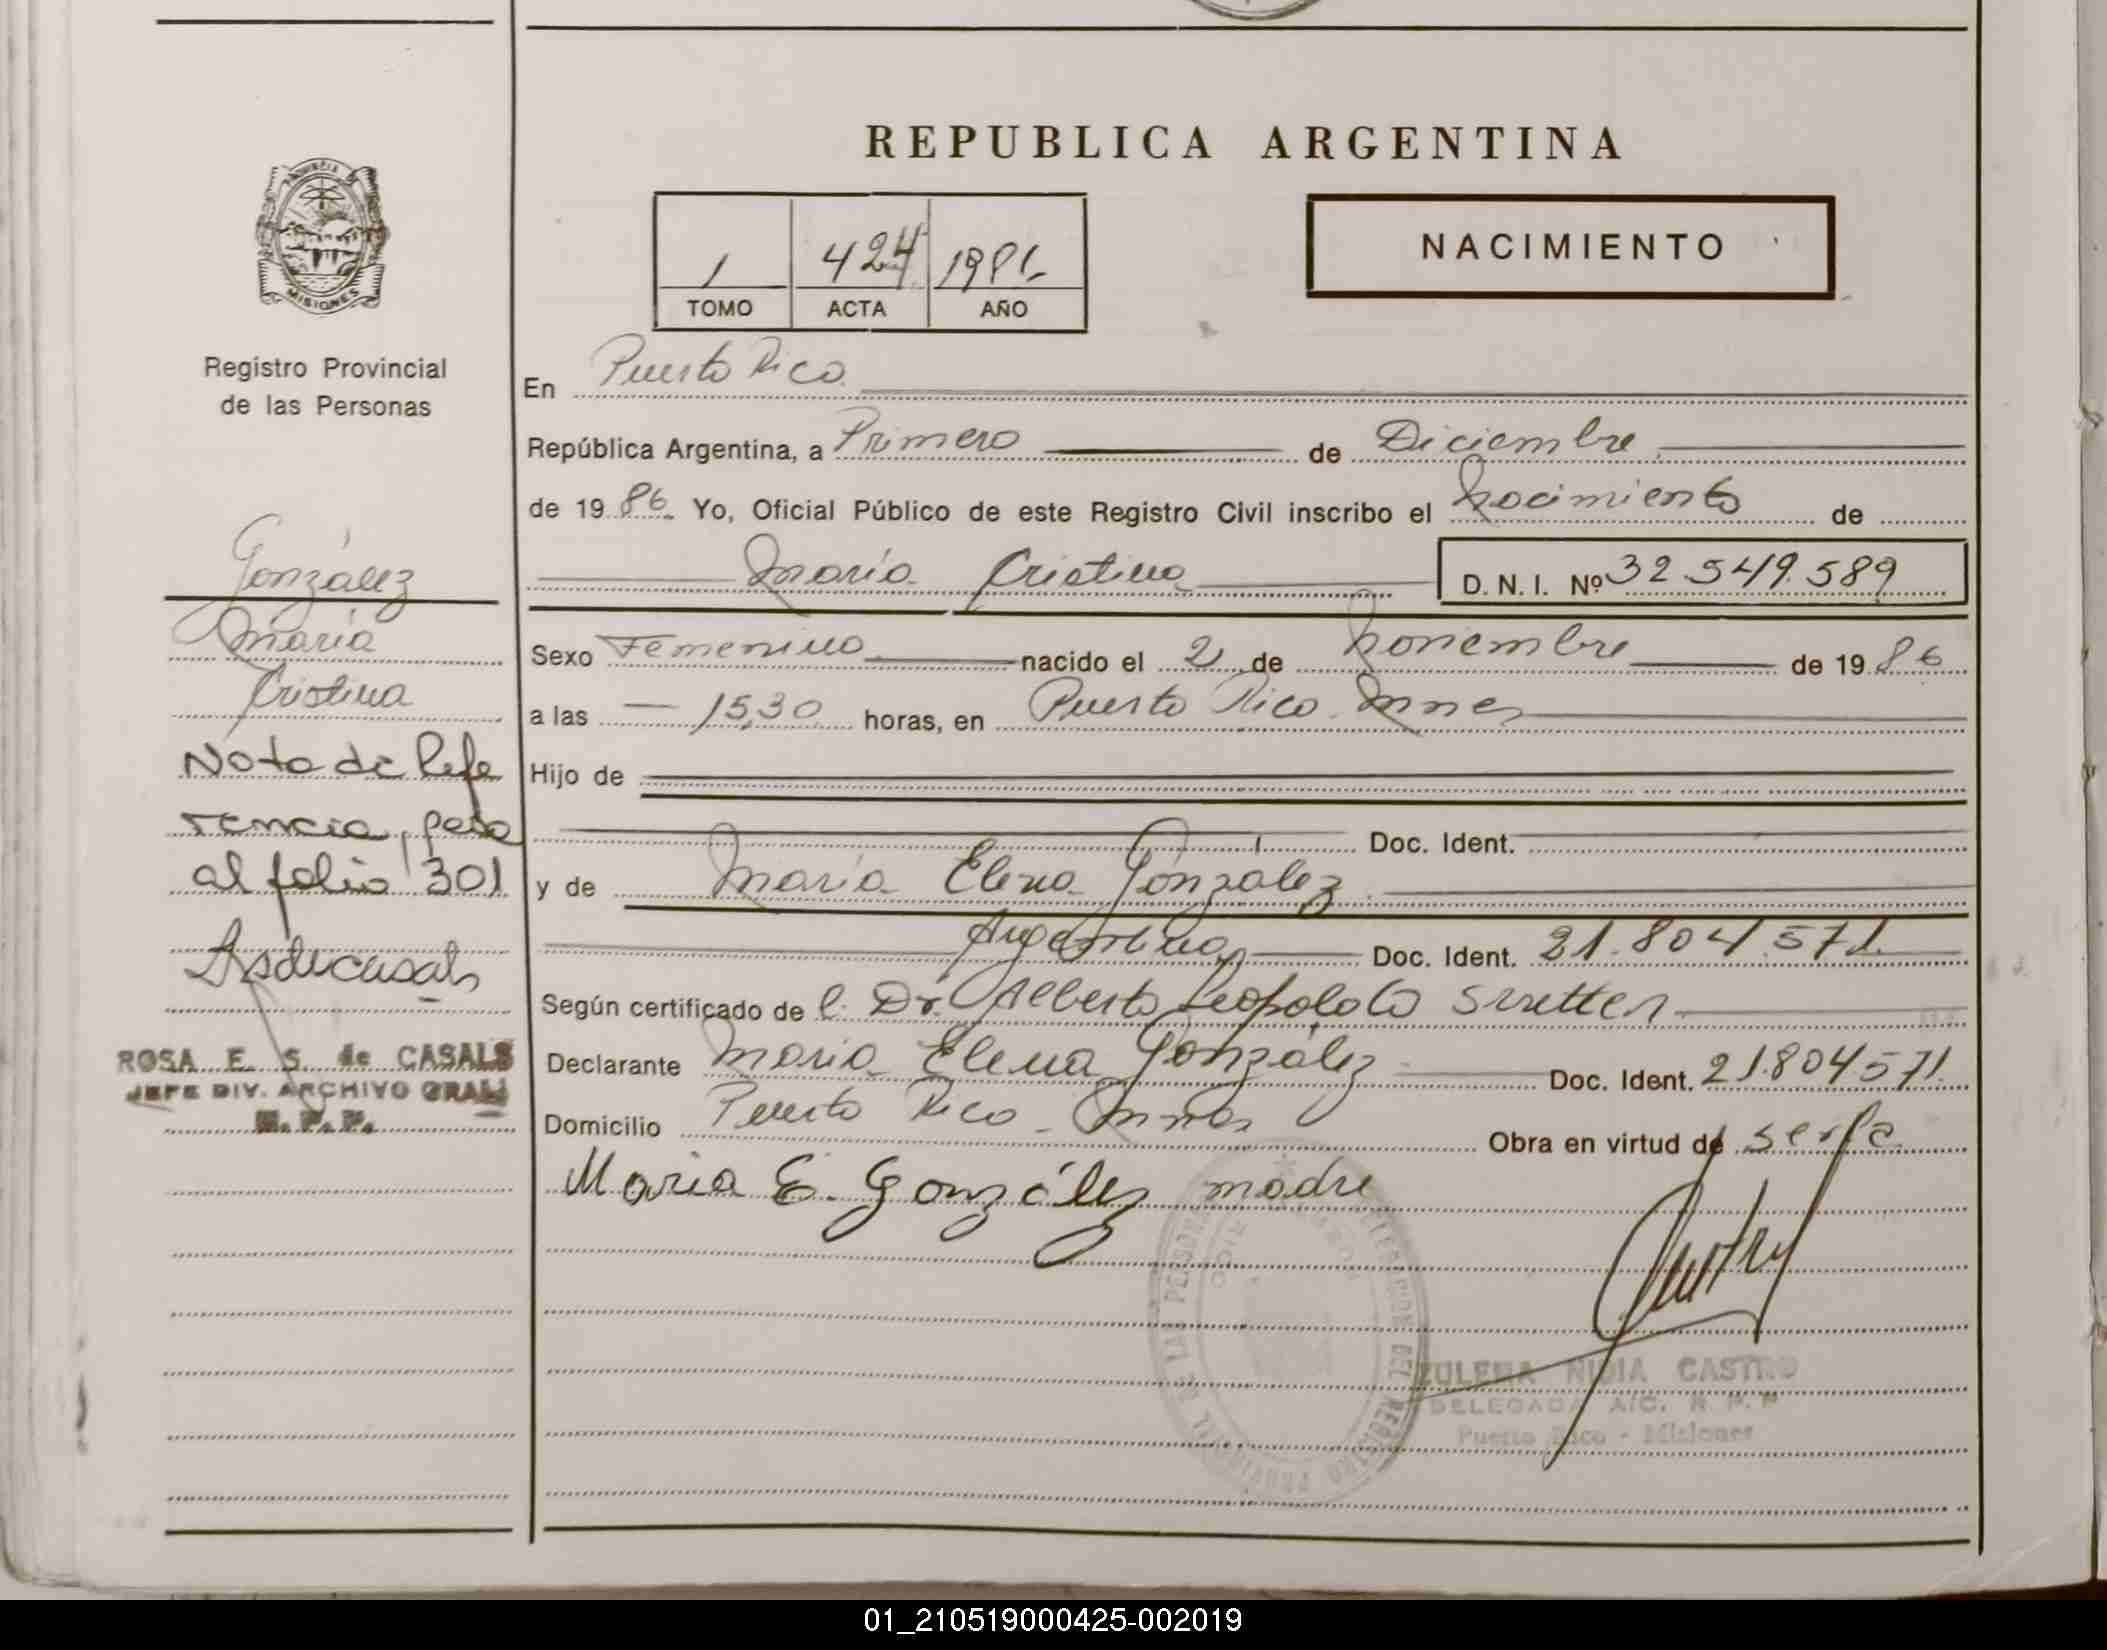 REPUBLICA ARGENTINA
PROVINCIA DE
MISIONES
Registro Provincial
de las Personas
1 424
TOMO ACTA AÑO
NACIMIENTO
En Puerto Rico
República Argentina, a Primero de Diciembre
de 1986 Yo, Oficial Público de este Registro Civil inscribo el nacimiento de
María Cristina D. N. I. Nº 32.549.589
Sexo Femenino nacido el 2 de noviembre de 1986
a las 15,30 horas, en Puerto Rico. Mnes
Hijo de
Doc. Ident.
y de María Elena González
Argentina, Doc. Ident. 21.804.571
Según certificado de l. Dr. Alberto Leopoldo
Declarante María Elena González Doc. Ident. 21.804571
Domicilio Puerto Rico - Mnes Obra en virtud de
María E. González madre
González
María
Cristina
Nota de Refe
rencia, pasa
al folio 301
ROSA E. S. de CASALS
JEFE DIV. ARCHIVO GRAL
R. P. P.
ZULEMA NIDIA CASTRO
DELEGADA A/C. R. P. P
Puerto Rico - Misiones
01_210519000425-002019